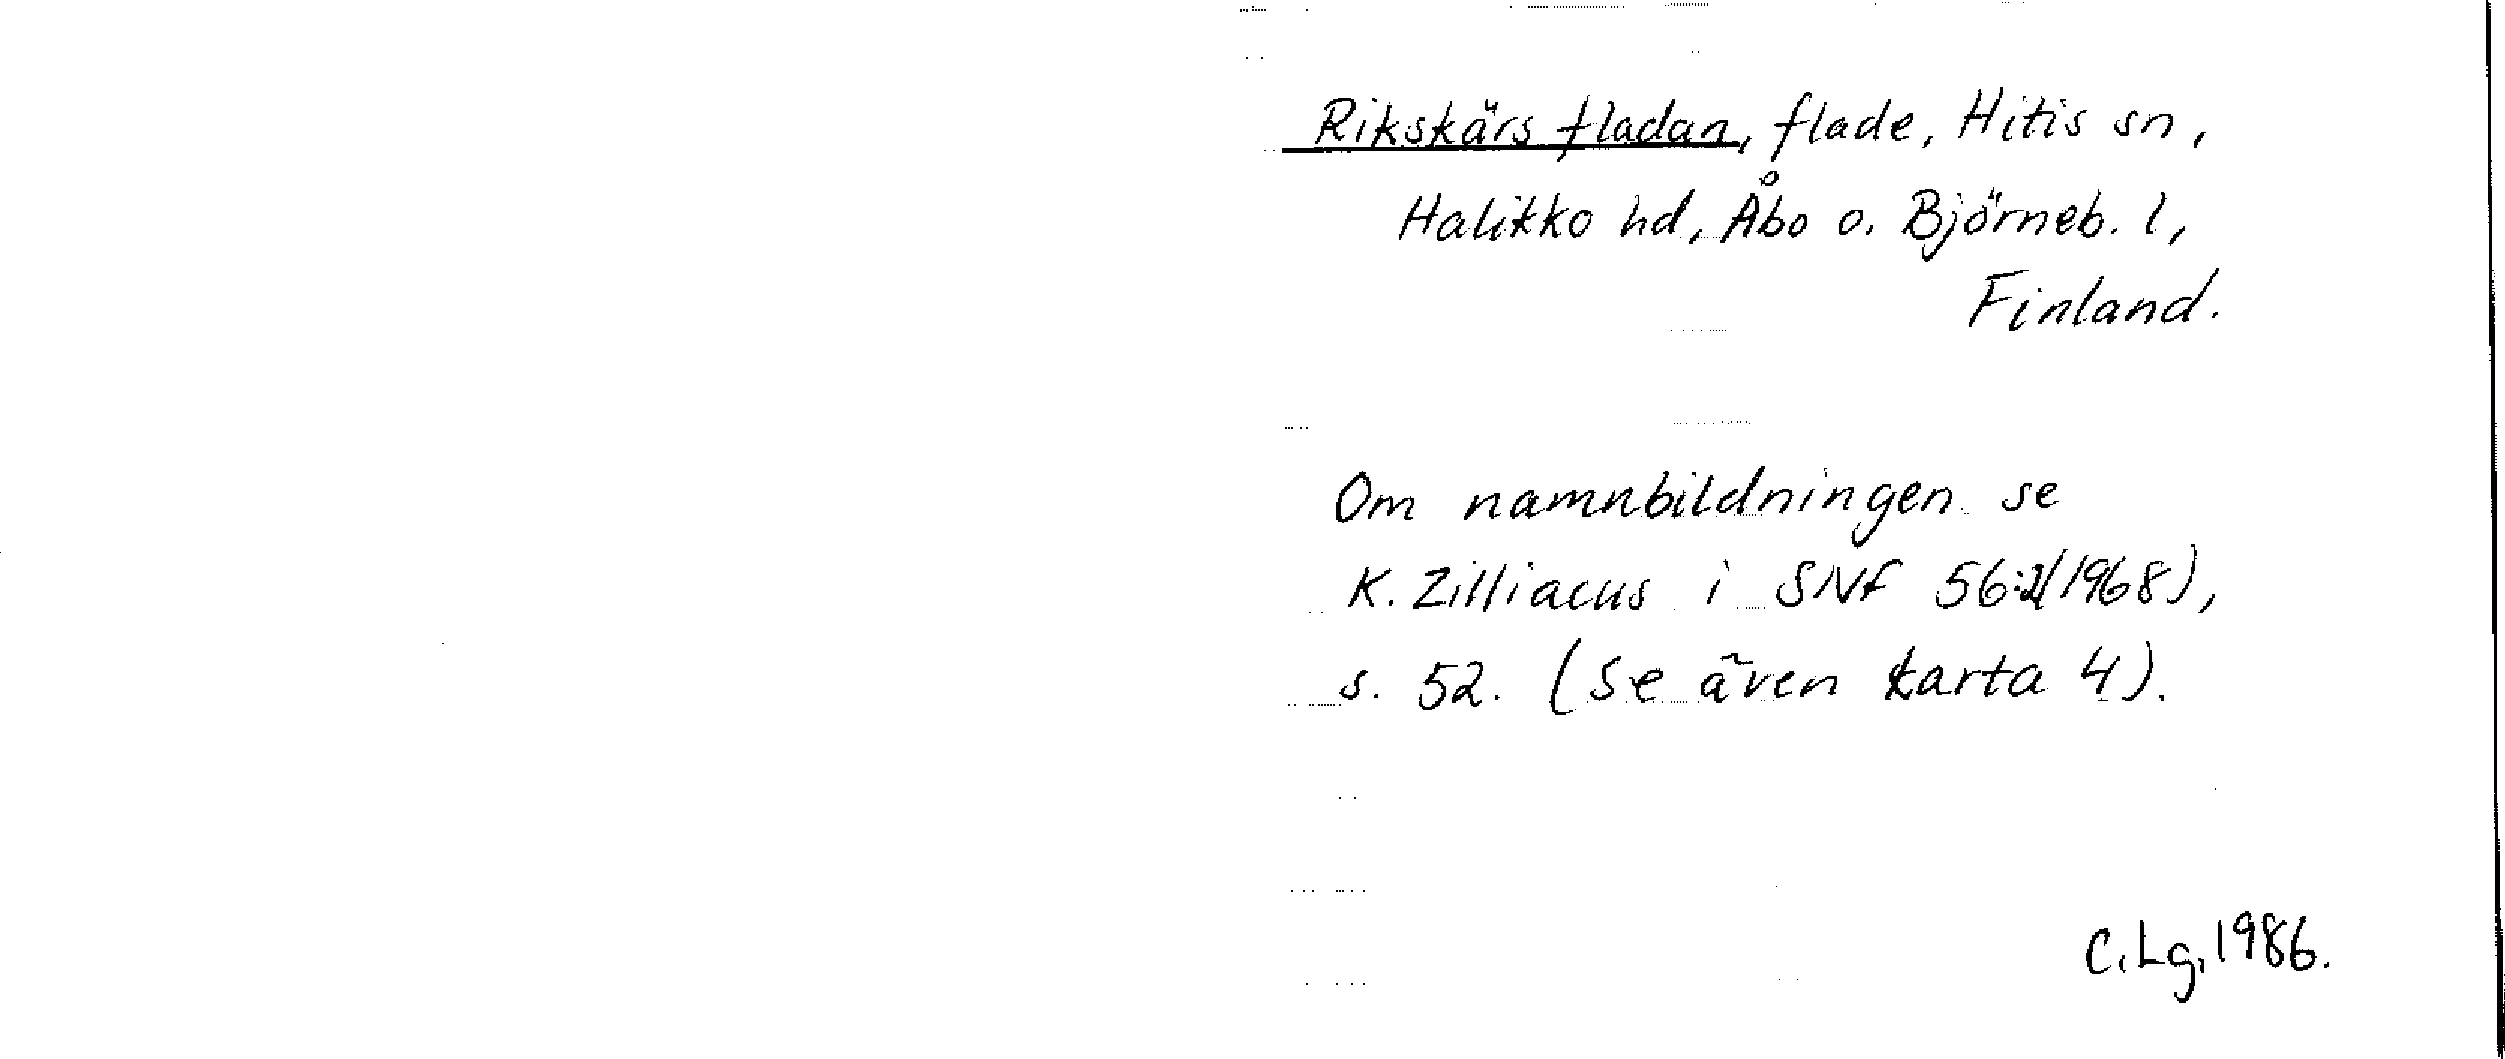 Rikskärs fladan, flade, Hitis sn,
Halikko hd, Åbo o. Björneb. l,
Finland.
Om namnbildningen se
K. Zilliacus i SNF 56:2(1968),
s. 52. (Se även karta 4).
C. Lg. 1986.